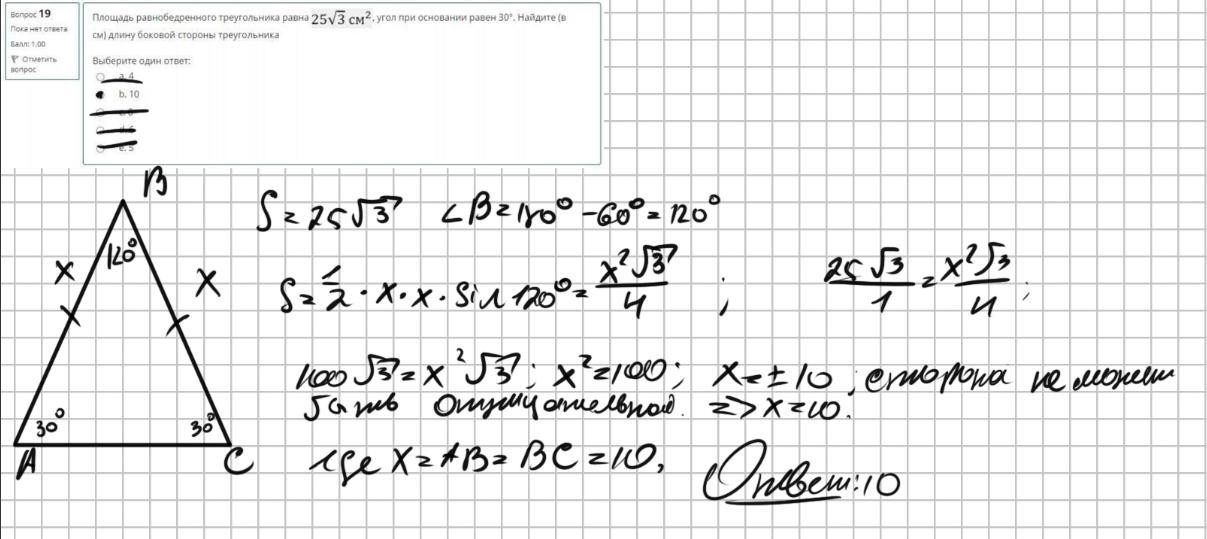 Вопрос 19
Пока нет ответа
Балл: 1,00
Отметить
вопрос
Площадь равнобедренного треугольника равна 25√3 см², угол при основании равен 30°. Найдите (в
см) длину боковой стороны треугольника
Выберите один ответ:
a. 4
b. 10
e. 5
B
120°
x
x
30°
30°
A
C
S = 25√3 ∠B = 180° - 60° = 120°
S = 1/2 · x · x · sin 120° = x²√3/4 ; 25√3/1 = x²√3/4 ;
100√3 = x²√3 ; x² = 100 ; x = ±10 ; сторона не может
быть отрицательной. => x = 10.
где x = AB = BC = 10,
Ответ: 10